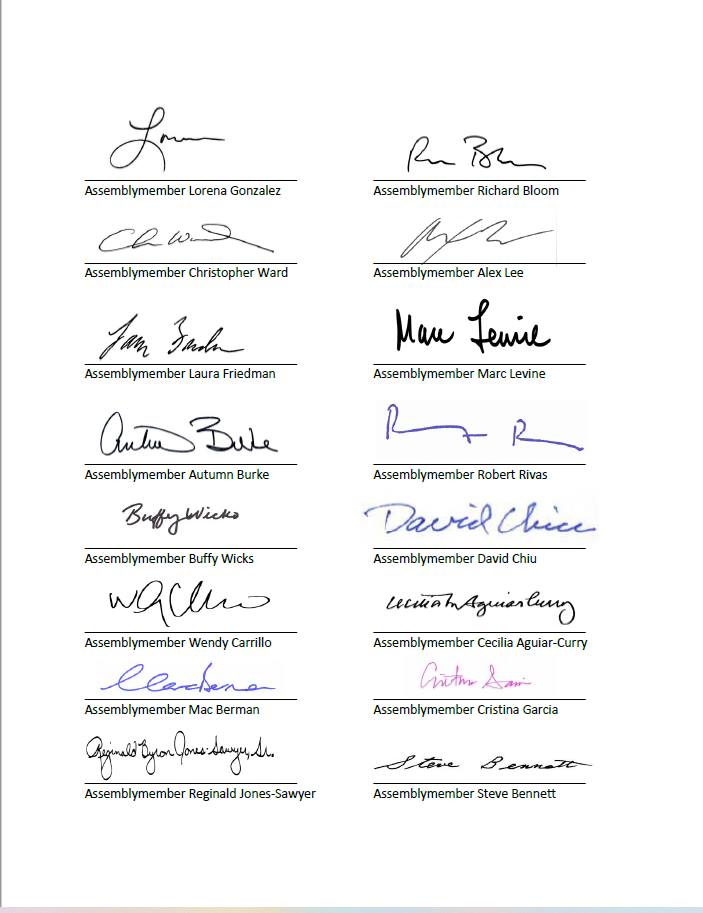 Assemblymember Lorena Gonzalez
Assemblymember Richard Bloom
Assemblymember Christopher Ward
Assemblymember Alex Lee
Marc Levine
Assemblymember Laura Friedman
Assemblymember Marc Levine
Autumn Burke
Assemblymember Autumn Burke
Assemblymember Robert Rivas
Buffy Wicks
David Chiu
Assemblymember Buffy Wicks
Assemblymember David Chiu
Cecilia M Aguiar-Curry
Assemblymember Wendy Carrillo
Assemblymember Cecilia Aguiar-Curry
Assemblymember Mac Berman
Assemblymember Cristina Garcia
Reginald Byron Jones-Sawyer, Sr.
Steve Bennett
Assemblymember Reginald Jones-Sawyer
Assemblymember Steve Bennett